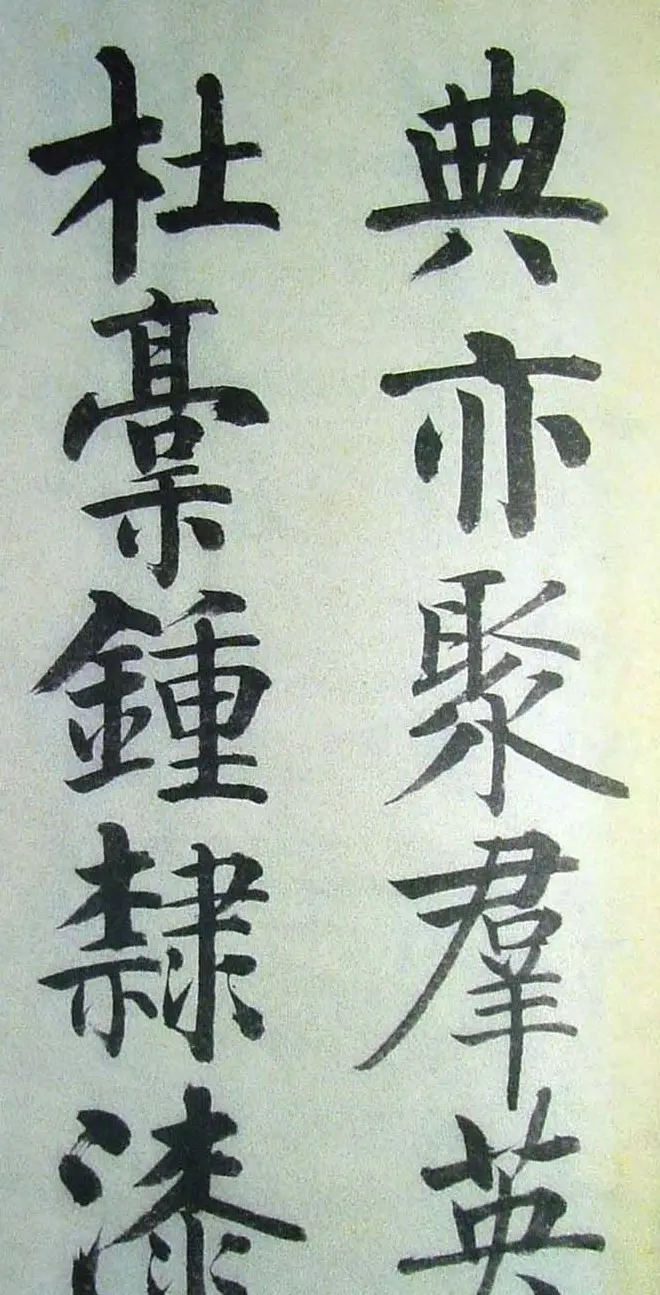 典亦聚羣英
杜稾鍾隸漆